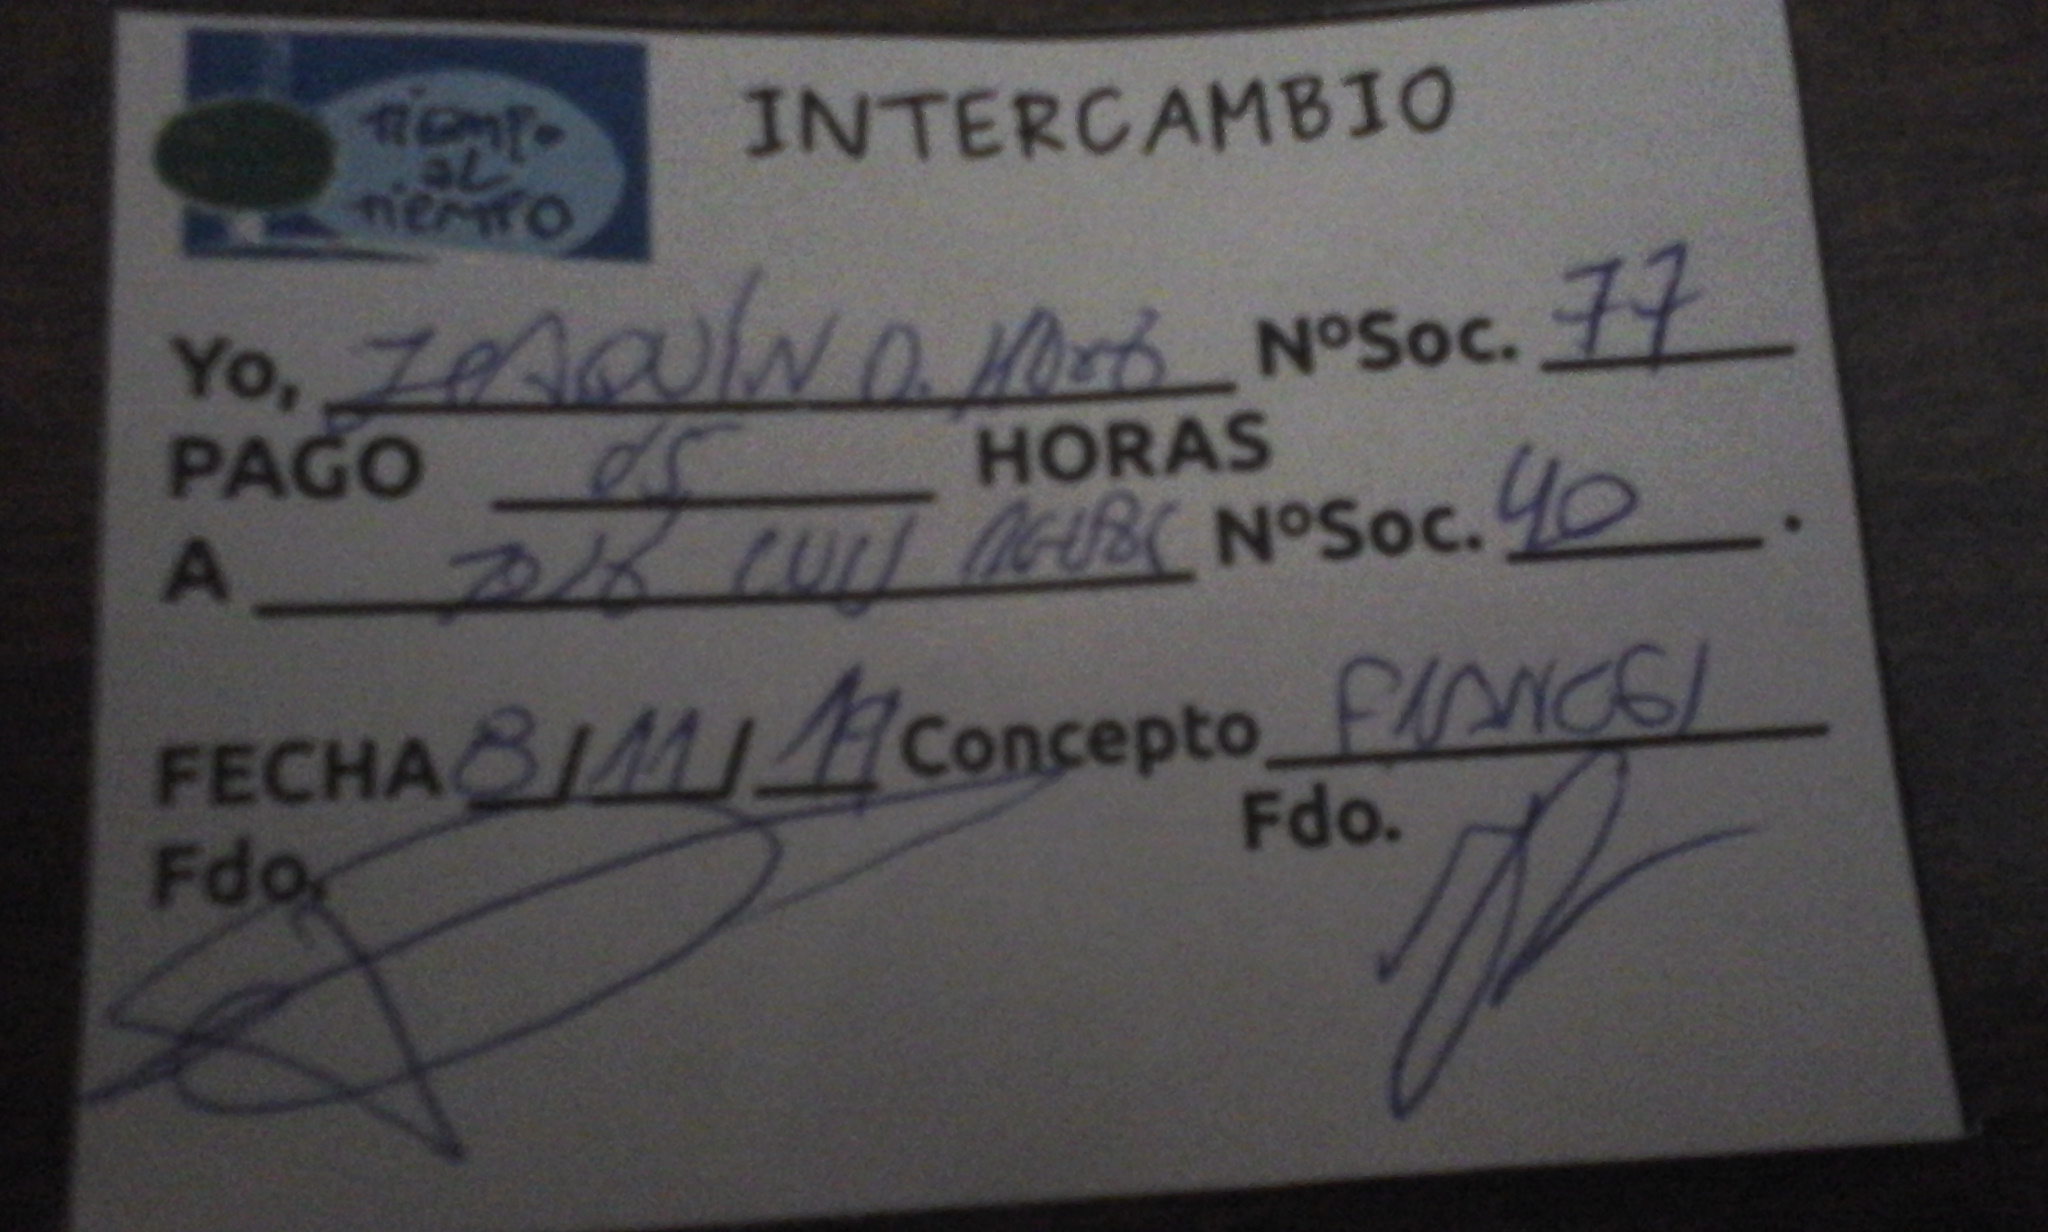 Tiempo
al
Tiempo
INTERCAMBIO
Yo, JOAQUÍN D. Nº Soc. 77
PAGO 05 HORAS
A JOSE LUIS Nº Soc. 40.
FECHA 8/11/19 Concepto FRANCES
Fdo. Fdo.